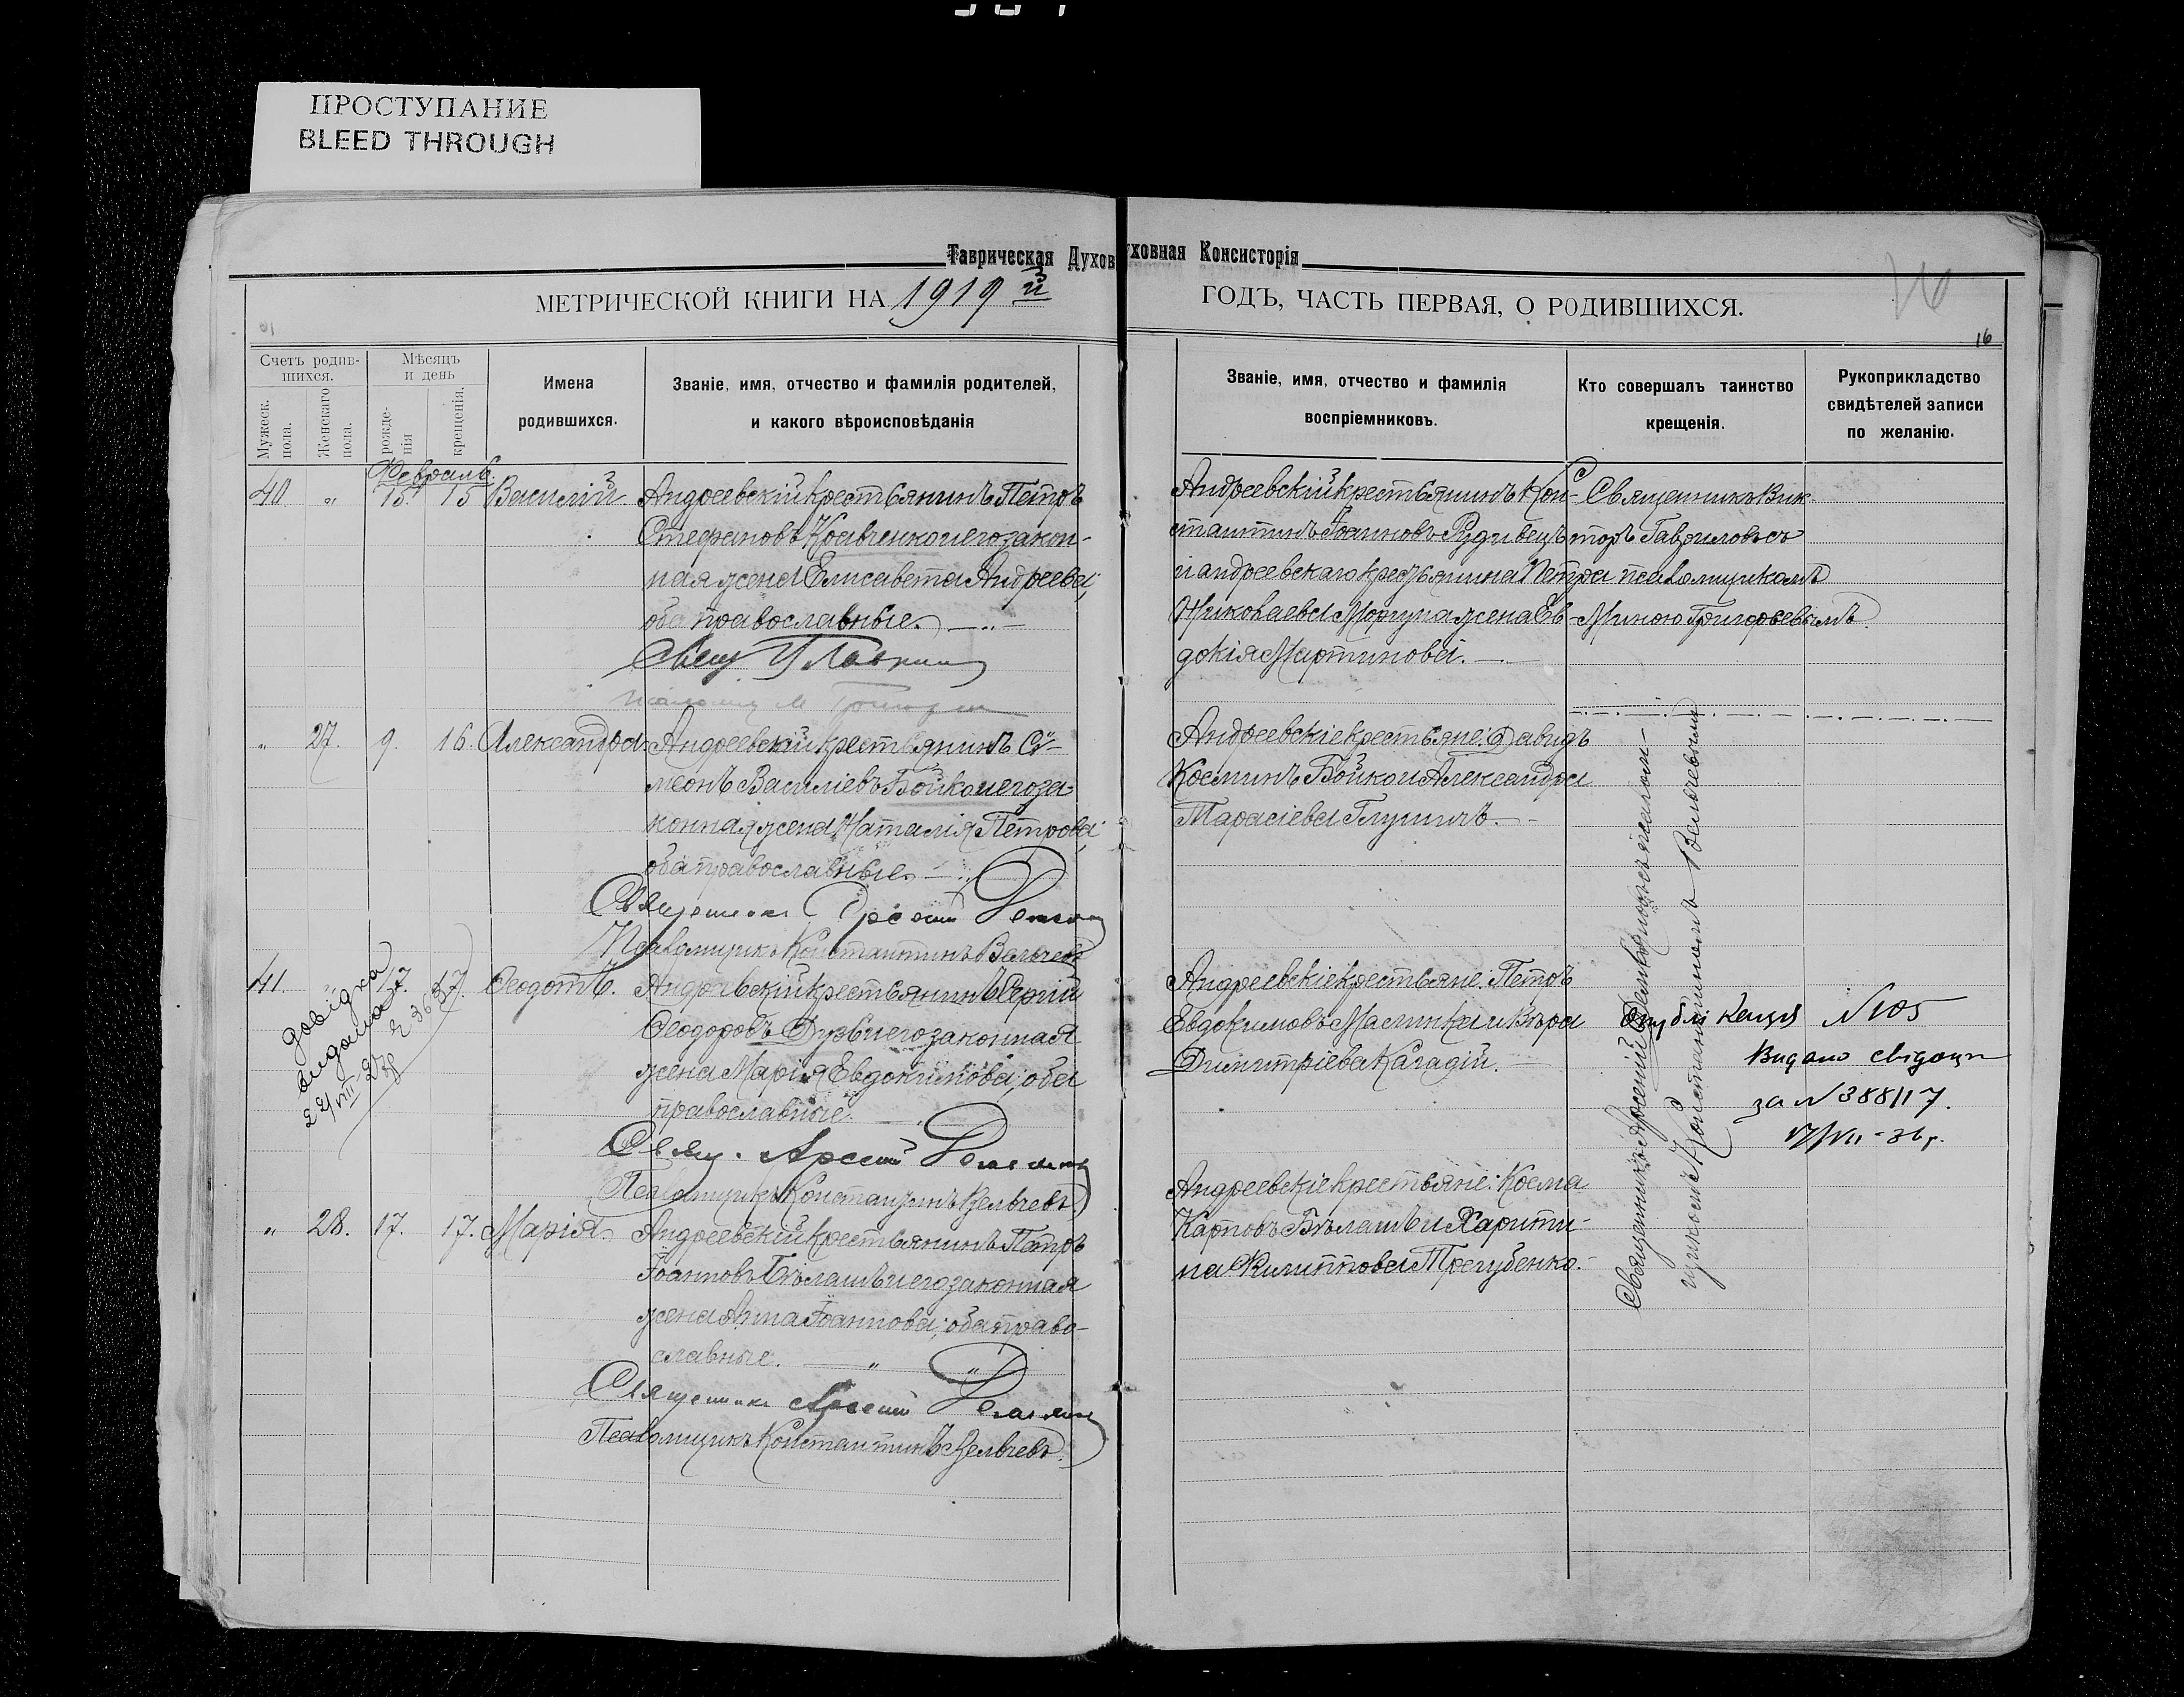 ПРОСТУПАНИЕ
BLEED THROUGH
Таврическая Духов
уховная Консисторія
МЕТРИЧЕСКОЙ КНИГИ НА 1919 й
ГОДЪ, ЧАСТЬ ПЕРВАЯ, О РОДИВШИХСЯ.
16
16
Счетъ родив-
шихся.
Мужеск.
пола.
Женскаго
пола.
Мѣсяцъ
и день
рожде-
нія
крещенія.
Имена
родившихся.
Званіе, имя, отчество и фамилія родителей,
и какого вѣроисповѣданія
Званіе, имя, отчество и фамилія
воспріемниковъ.
Кто совершалъ таинство
крещенія.
Рукоприкладство
свидѣтелей записи
по желанію.
Февраль.
40 " 15. 15 Василій. Андреевскій крестьянинъ Петръ
Стефановъ Кравченко и его закон-
ная жена Елисавета Андреева,
оба православные.
Свящ.
Андреевскій крестьянинъ Кон-
стантинъ Іоанновъ
и андреевскаго крестьянина Петра
Николаева жена Ев-
докія Мартинова.
Священникъ Вик-
торъ Гавриловъ съ
псаломщикомъ
Миною Григорьевымъ
" 27. 9. 16. Александра Андреевскій крестьянинъ Си-
меонъ Василіевъ Бойко и его за-
конная жена Наталія Петрова,
оба православные.
Священникъ Арсеній
Псаломщикъ Константинъ Вельчевъ
Андреевскіе крестьяне: Давидъ
Косминъ Бойко и Александра
Тарасіева
41. " 17. 17. Феодотъ. Андреевскій крестьянинъ Сергій
Феодоровъ и его законная
жена Марія Евдокимова, оба
православные.
Свящ. Арсеній
Псаломщикъ Константинъ Вельчевъ
довідка
видана
Андреевскіе крестьяне: Петръ
Евдокимовъ и Вѣра
Димитріева
N 105
Видано свідоцт
за N 388117.
" 28. 17. 17. Марія. Андреевскій крестьянинъ Петръ
Іоанновъ Бѣлашъ и его законная
жена Анна Іоаннова, оба право-
славные.
Священникъ Арсеній
Псаломщикъ Константинъ Вельчевъ.
Андреевскіе крестьяне: Косма
Карповъ Бѣлашъ и Харити-
на Филиппова
Священникъ Арсеній съ псалом-
щикомъ Константиномъ Вельчевымъ